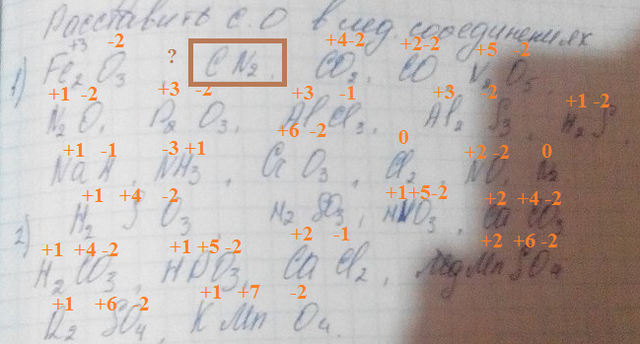 Расставить С.О в след. соединениях
+3 -2 ? +4 -2 +2 -2 +5 -2
1) Fe2 O3 , CN2 , CO2 , CO , N2 O5
+1 -2 +3 -2 +3 -1 +3 -2 +1 -2
N2 O , P2 O3 , Al Cl3 , Al2 S3 , H2 S ,
+1 -1 -3 +1 +6 -2 0 +2 -2 0
Na H , NH3 , Cr O3 , Cl2 , NO ,
+1 +4 -2 +1 +5 -2 +2 +4 -2
H2 S O3 , H2 SO3 , HNO3 , Ca CO3
+1 +4 -2 +1 +5 -2 +2 -1 +2 +6 -2
2) H2 CO3 , HNO3 , Ca Cl2 , SO4
+1 +6 -2 +1 +7 -2
SO4 , K Mn O4 .